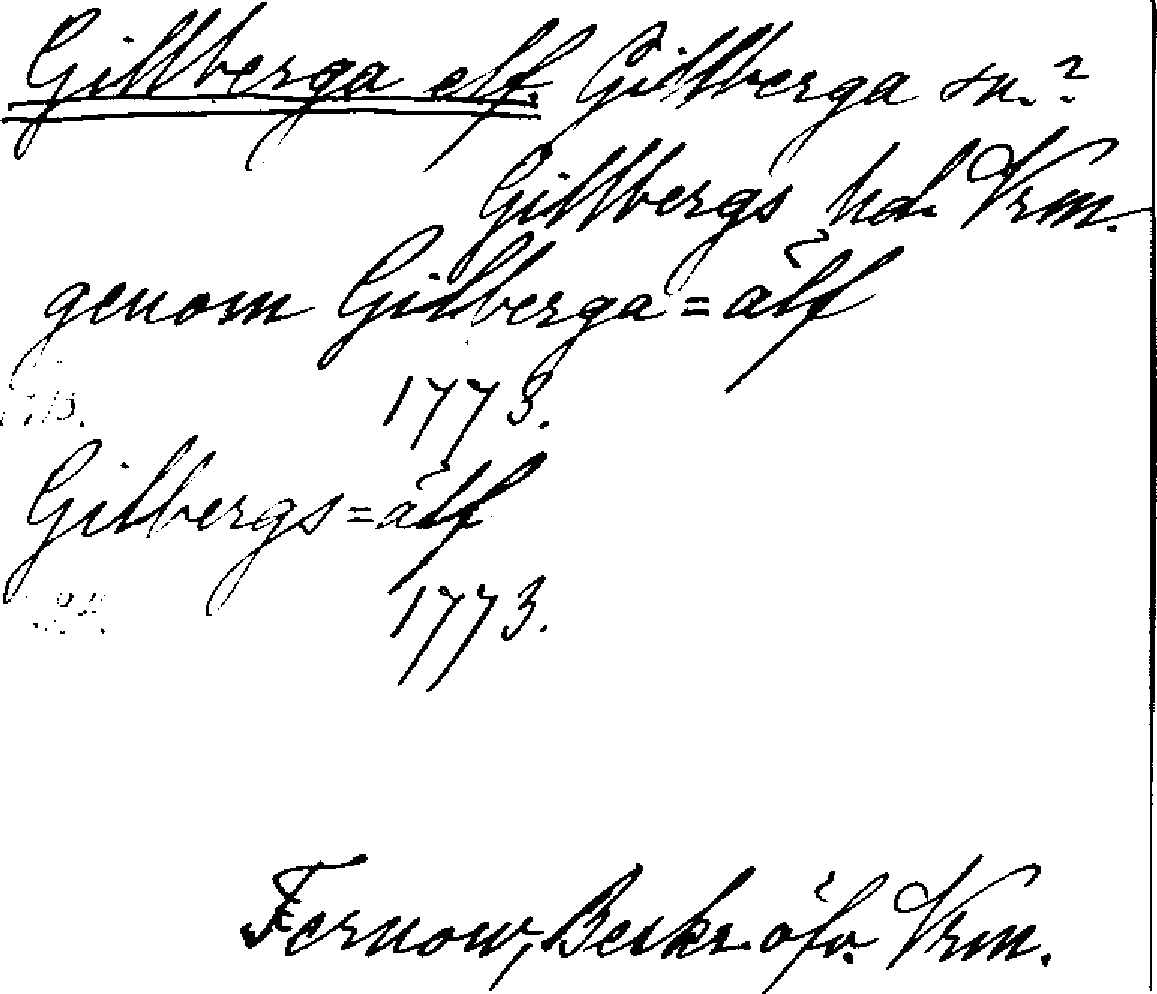 Gillberga elf. Gillberga sn.?
Gillbergs hd. Vrm.
genom Gilberga=älf
1773.
Gilbergs=älf
1773.
Fernow, Beskr. öfv. Vrm.